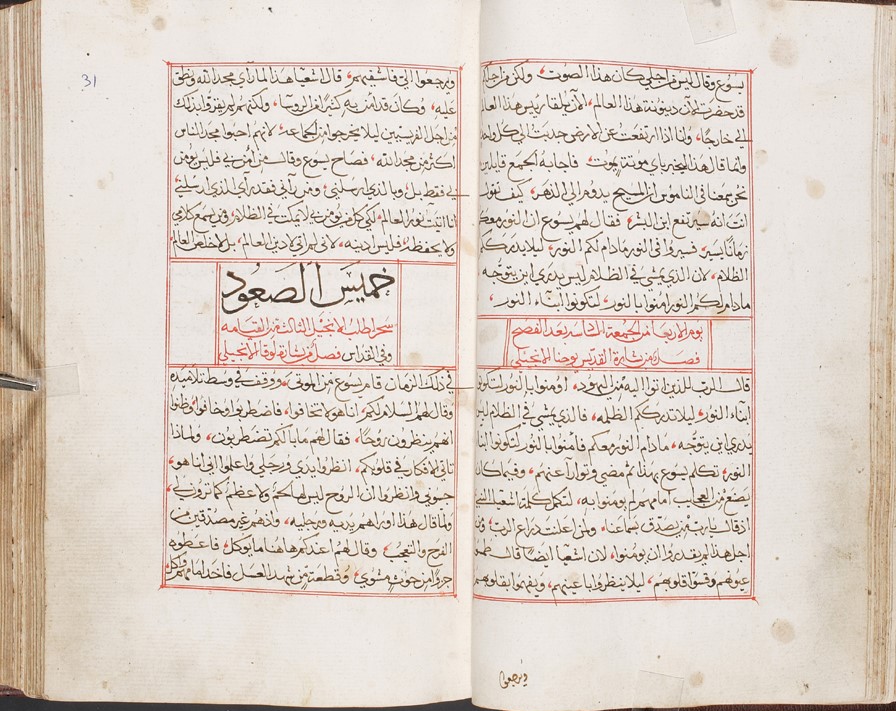 يسوع وقال ليس من اجلي كان هذا الصوت، ولكن من اجلكم
قد حضرت الآن دينونة هذا العالم، الآن يلقا رييس هذا العالم
الي خارجًا، وانا اذا ارتفعت عن الارض جذبت الي كل واحد
وانما قال هذا ليخبر باي موتة يموت، فاجابه الجمع قايلين
نحن سمعنا في الناموس ان المسيح يدوم الي الدهر، كيف تقول
انت انه سيرتفع ابن البشر، فقال لهم يسوع ان النور معكم
زمانًا يسير، فسيروا في النور مادام لكم النور، ليلا يدرككم
الظلام، لان الذي يمشي في الظلام ليس يدري اين يتوجه
مادام لكم النور امنوا بالنور، لتكونوا ابناء النور،
يوم الاربعا من الجمعة السادسه بعد الفصح
فصل من بشارة القديس يوحنا الانجيلي
قال الرب للذين اتوا اليه من اليهود، امنوا بالنور لتكونوا
ابناء النور، ليلا تدرككم الظلمه، فالذي يمشي في الظلام ليس
يدري اين يتوجه، مادام النور معكم فامنوا بالنور لتكونوا ابنا
النور، تكلم يسوع بهذا ثم مضي وتوارا عنهم، وفيما كان
يصنع من العجايب امامهم لم يومنوا به، لتكمل كلمة اشعيا النبي
اذ قال يا رب من يصدق سماعنا، ولمن اعلنت ذراع الرب، ومن
اجل هذا لم يقدروا ان يومنوا، لان اشعيا ايضًا قال طمس
عيونهم وقسوا قلوبهم، ليلا ينظروا باعينهم، ويفهموا بقلوبهم
ويرجعوا
31
ويرجعوا الي فاشفيهم، قال اشعيا هذا لما راي مجد الله ونطق
عليه، وكان قد امن به كثيرًا من الروسا، ولكنهم لم يقروا بذلك
من اجل الفريسيين ليلا يخرجوا من الجماعة، لانهم احبوا مجد الناس
اكثر من مجد الله، فصاح يسوع وقال من آمن بي فليس يومن
بي فقط بل وبالذي ارسلني، ومن رآني فقد راي الذي ارسلني
انا اتيت نور العالم، لكي كل من يومن بي لا يمكث في الظلام، ومن سمع كلامي
ولا يحفظه فليس ادينه، لاني لم اتي لادين العالم، بل لاخلص العالم
خميس الصعود
سحرا طلب الانجيل الثالث من القيامه
وفي القداس فصل من بشارة لوقا الانجيلي
في ذلك الزمان قام يسوع من الموتي ووقف في وسط تلاميذه
وقال لهم السلام لكم، انا هو لا تخافوا، فاضطربوا وخافوا وظنوا
انهم ينظرون روحًا، فقال لهم ما بالكم تضطربون، ولماذا
تاتي الافكار في قلوبكم، انظروا يدي ورجلي واعلموا اني انا هو،
جسوني وانظروا ان الروح ليس لها لحم ولا عظم كما ترون لي
ولما قال هذا اوراهم يديه ورجليه، واذ هم غير مصدقين من
الفرح والتعجب، وقال لهم اعندكم هاهنا ما يوكل، فاعطوه
جزوًا من حوت مشوي، وقطعة من شهد العسل فاخذ امامهم واكل